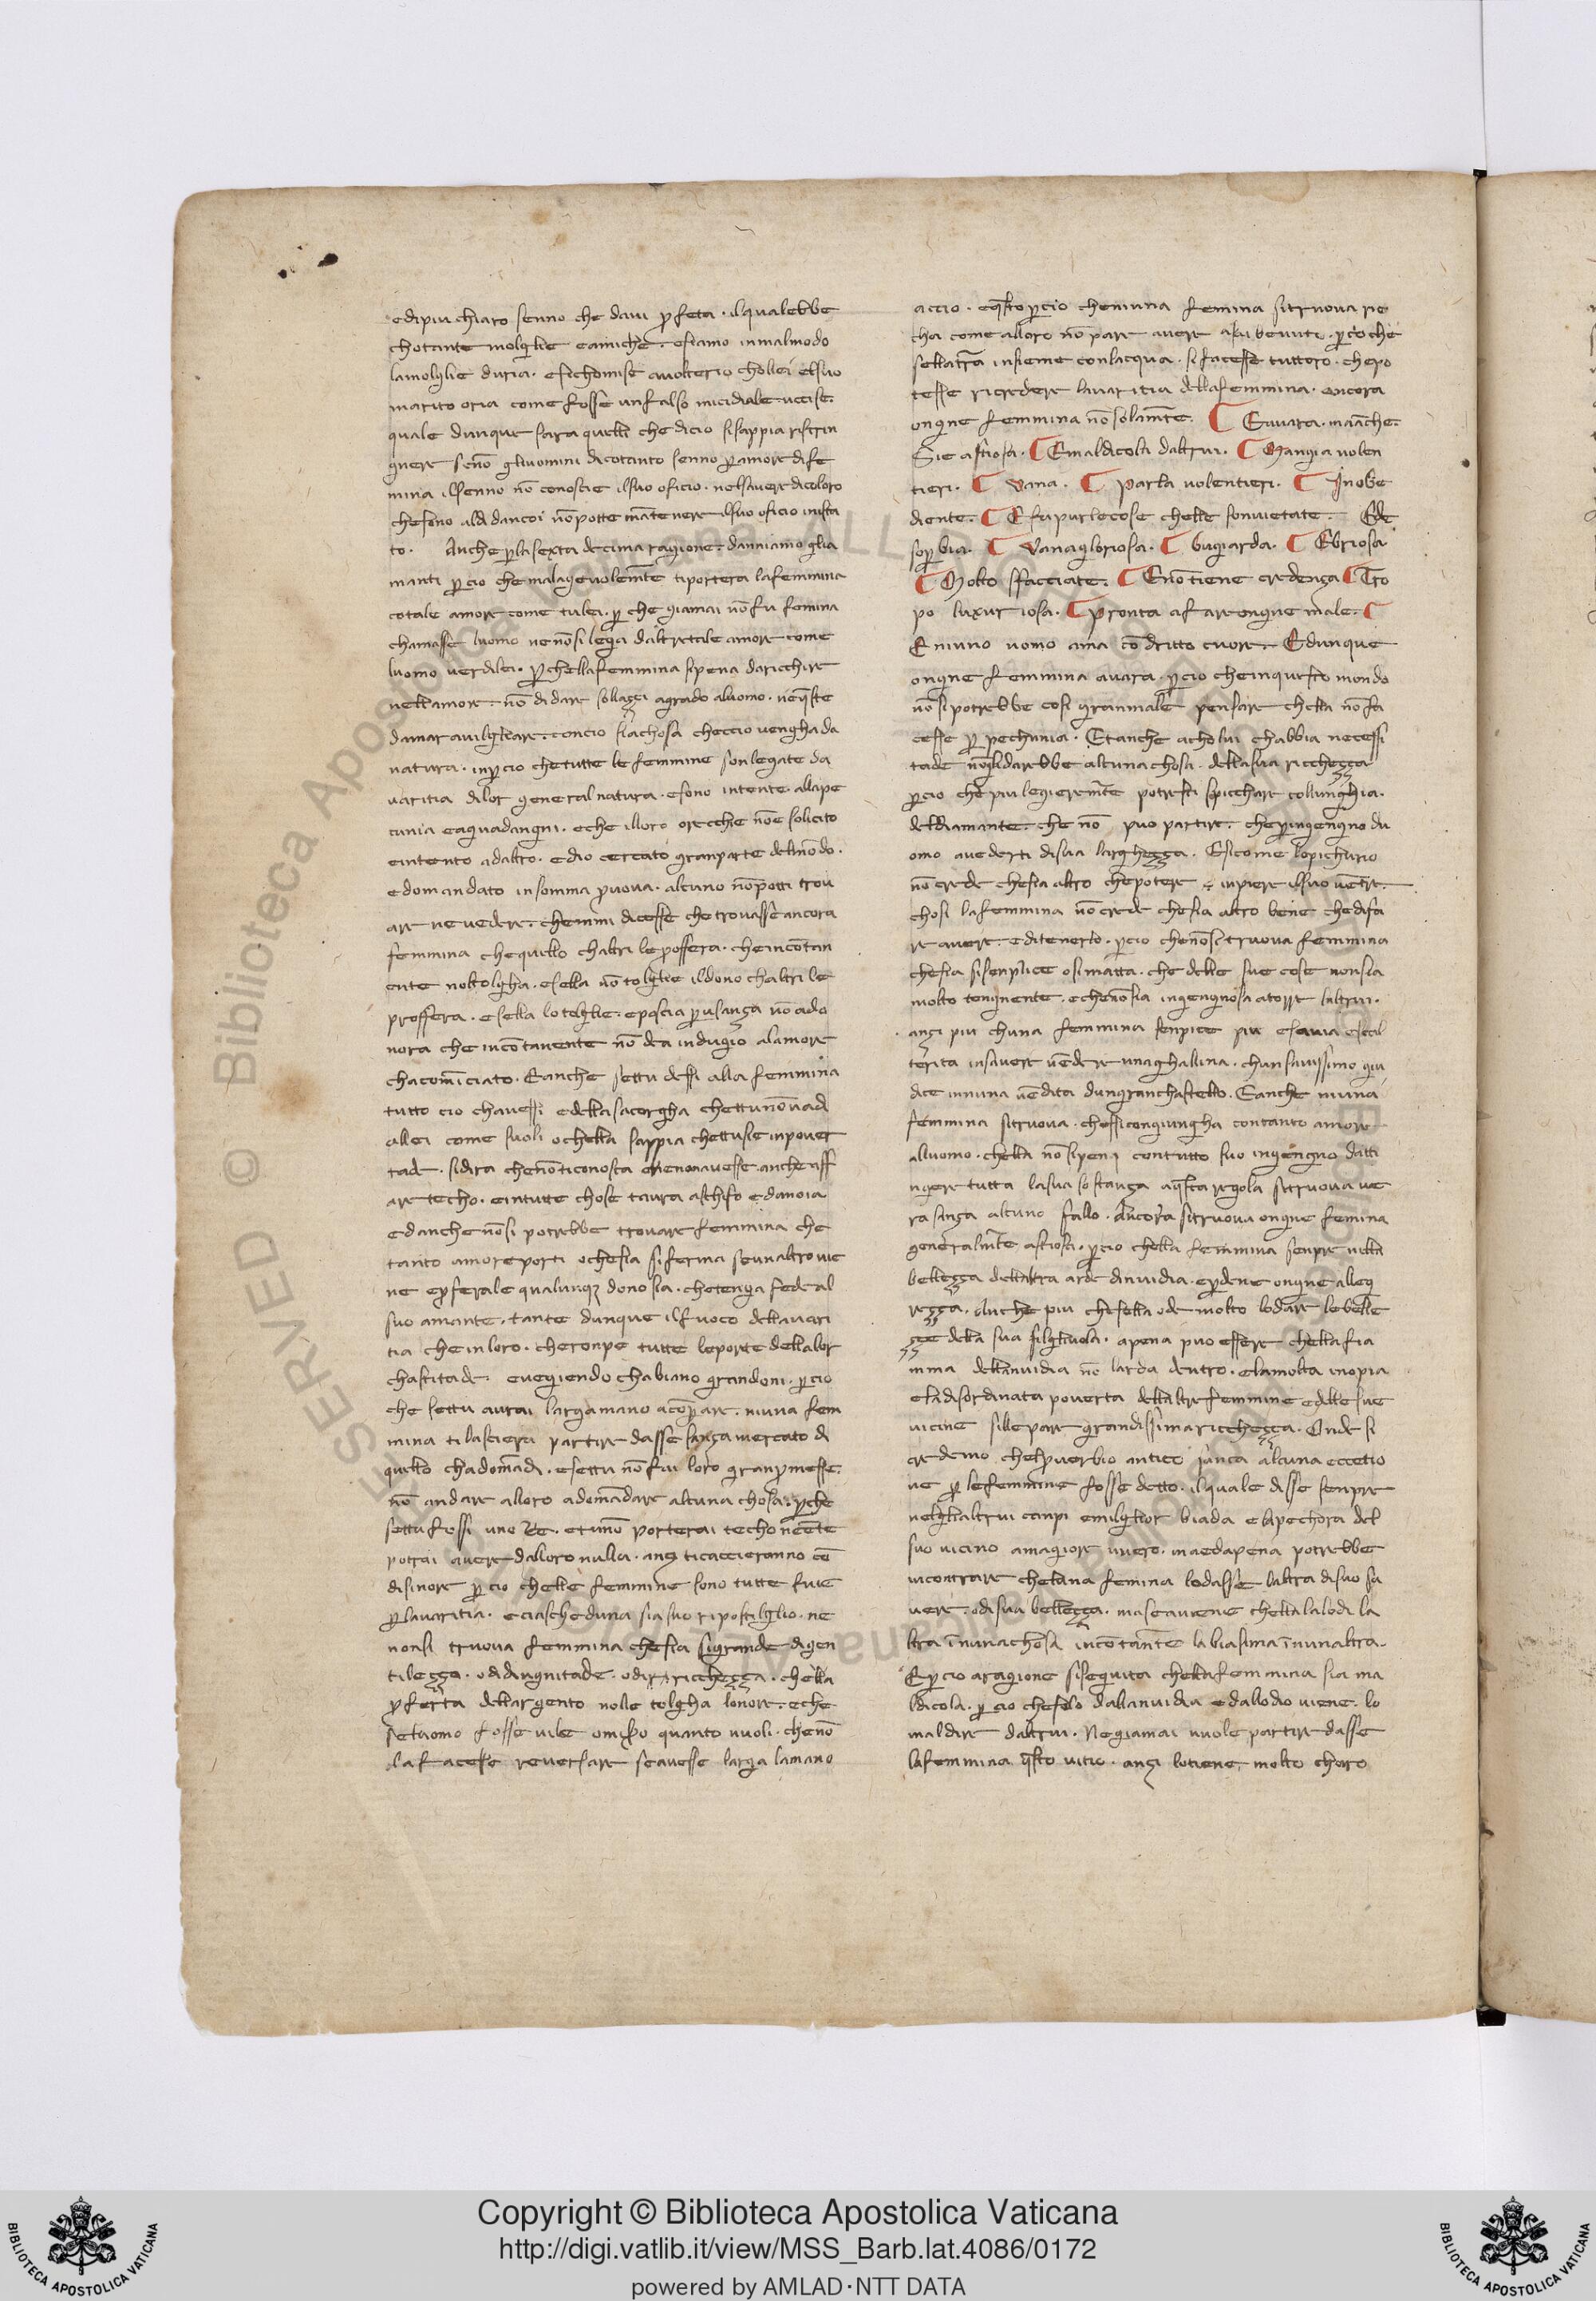 edipiu chiaro senno che daui ꝓfeta · ilqualebbe
chotante molglie eamiche · esiamo inmalmodo
lamolglie duria · esichomise auolterio chollei elsuo
marito oria come fosse unfalso micidiale uccise ·
quale dunque sara quelli che dicio sisappia ristrin
gnere senō gliuomini dicotanto senno ꝑamore dife
mina ilsenno nō conoscie ilsuo oficio · nelsauere dicoloro
chesono aldi dancoi nōpotte mātenere ilsuo oficio inista
to · Anche ꝑlasexta decima ragione · danniamo glia
manti ꝑcio che malageuolemēte tiportera lafemmina
cotale amore come tulei · ꝑche giamai nōfu femina
chamasse luomo nenōsi legai daltretale amore come
luomo uerdilei · ꝑchellafemmina sipena daricchire
nellamore · nō didare sollazzi agrado aluomo · neq̄ste
damarauilgliare · concio siachosa checcio uengha da
natura · inꝑcio chetutte le femmine sonlegate da
uaritia dilor general natura · esono intente allape
cunia eaguadangni · eche illoro orecchie nōe solicito
eintento adaltro · edio cercato granparte delmōdo ·
edomandato insomma ꝓuoua · alcuno nōpotti trou
are neuedere · chemmi dicesse chetrouasse ancora
femmina chequello chaltri leꝓossera · cheincōtan
ente nolltolgha · esella nō tolglie ildono chaltri le
proffera · esella lotolglie · eposcia ꝑusanza nō ado
nora che incōtanente nō dea indugio alamore
chacomīciato · Eanche settu dessi alla femmina
tutto cio chauessi edellasacorgha chettunōuadi
allei come suoli ochella sappia chettusie inpouer
tade · sidira chenōticonosca chenonauesse ancheaff
are techo · eintutte chose taura aschifo edanoia
edanche nōsi potrebbe trouare femmina che
tanto amore porti ochesia siferma seunaltro uie
ne eꝓferale qualunqꝫ dono sia · chetenga fede al
suo amante · tante dunque ilfuoco dellauari
tia cheinloro · cheronpe tutte leporte dellalor
chastitade · euegiendo chabiano grandoni · ꝑcio
che settu aurai largamano acōꝑare · niuna fem
mina tilasciera partire dasse sanza mercato di
quello chadomādi · esettu nōfai loro granꝓmesse ·
nō andare alloro adomādare alcuna chosa · ꝑche
settu fossi uno Re · etunō porterai techo nēente
potrai auere dalloro nulla · anzi ticaccieranno cō
disinore ꝑcio chelle femmine sono tutte fuie
ꝑlauaritia · eciascheduna sia suo ripostilglio · ne
nonsi truoua femmina chesia sigrande digen
tilezza · odidingnitade · odiricchezza · chella
ꝓferta dellargento nolle tolgha lonore · eche
seluomo fosse uile omiso quanto uuoli · chenō
lafacesse reuersare seauesse larga lamano
accio · eq̄sto ꝑcio cheniuna femina sitruoua ric
cha come alloro nō pare auere assi beuuto · ꝑcio che
sellatrā insieme conlacqua · sifacesse tuttoro · chepo
tesse ricredere lauaritia dellafemmina · ancora
ongne femmina nōsolamēte · Eauara · maāche ·
Sie astiosa · Emaldicola daltrui · Mangia uolen
tieri · Vana · Parla uolentieri · Inobe
diente · Efapurlecose chelle sonuietate · Ede
soꝑbia · Vanagloriosa · Bugiarda · Ebriosa
Molto sfacciate · Enōtiene credenza Tro
po luxuriosa · Pronta afare ongne male ·
Eniuno uomo ama cō dritto cuore · Edunque
ongne femmina auara · ꝑcio cheinquesto mondo
nō sipotrebbe cosi granmale pensare chella nō fa
cesse ꝑ pechunia · Etanche acholui chabbia necessi
tade nōglidarebbe alcuna chosa · dellasua ricchezza
ꝑcio che piu legieremēte potresti spicchare collunghia ·
deldiamante · che nō puo partire · cheꝑingengno du
omo auederti disua larghezza · Esicome lopichurio
nō crede chesia altro chepotere · inpiere ilsuo uētre ·
chosi lafemmina nō crede chesia altro bene chedifa
re auere · editenerlo · ꝑcio chenōsi truoua femmina
chesia sisenplice osimatta · che delle sue cose nonsia
molto tengnente · echenōsia ingengnosa atorre laltrui ·
anzi piu chuna femmina senpice piu esauia escal
terita insauere uēdere unaghallina · chunsauissimo giu
dice inuna uēdita dungranchastello · Eanche niuna
femmina sitruoua · chessicongiungha contanto amore
alluomo · chella nō sipeni contutto suo ingengno datti
ngere tutta lasua sostanza aq̄sta regola sitruoua ue
ra sanza alcuno fallo · Ancora sitruoua ongne femina
generalmēte astiosa · ꝑcio chella femmina senpre nella
bellezza dellaltra arde dinuidia · eꝑdene ongne alleg
rezza · Anche piu chesella ode molto lodare lebelle
zze della sua filgliuola · apena puo essere chella fia
mma dellanuidia nō larda dentro · elamolta inopia
eladisordinata pouerta dellaltre femmine edelle sue
uicine sillepare grandissima ricchezza · Onde si
credemo chelꝓuerbio antico sanza alcuna eccetio
ne ꝑ lefemmine fosse detto · ilquale disse senpre
nelglialtrui canpi emilglior biada elapechora del
suo uicino amagiore uuero · maedapena potrebbe
incontrare cheluna femina lodasse laltra disuo sa
uere · odisua bellezza · maseauiene chellalalodi la
ltra ī nunachosa incōtanēte labiasima ī nunaltra ·
Eꝑcio aragione sisequita chellafemmina sia ma
ldicola · ꝑcio chesolo dallanuidia edallodio uiene · lo
maldire daltrui · Negiamai uuole partire dasse
lafemmina q̄sto uitio · anzi lotiene molto charo
Copyright © Biblioteca Apostolica Vaticana
http://digi.vatlib.it/view/MSS_Barb.lat.4086/0172
powered by AMLAD·NTT DATA